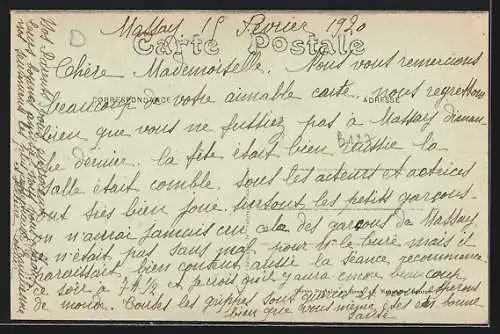 Massay 15 Février 1920
Carte Postale
Chère Mademoiselle. Nous vous remercions
CORRESPONDANCE
ADRESSE
beaucoup de votre aimable carte. nous regrettons
bien que vous ne fussiez pas à Massay diman
che dernier. la fête était bien réussie la
salle était comble. Tous les acteurs et actrices
ont très bien joué surtout les petits garçons
on n'aurai jamais cru cela des garçons de Massay
ce n'était pas sans mal pour Mr le Curé mais il
paraissait bien content aussi la séance recommence
ce soir à 7 h ½ et parait qu'il y aura encore beaucoup
de monde. Toutes les grippées sont guéries et nous espérons
bien que vous même êtes en bonne
santé
D